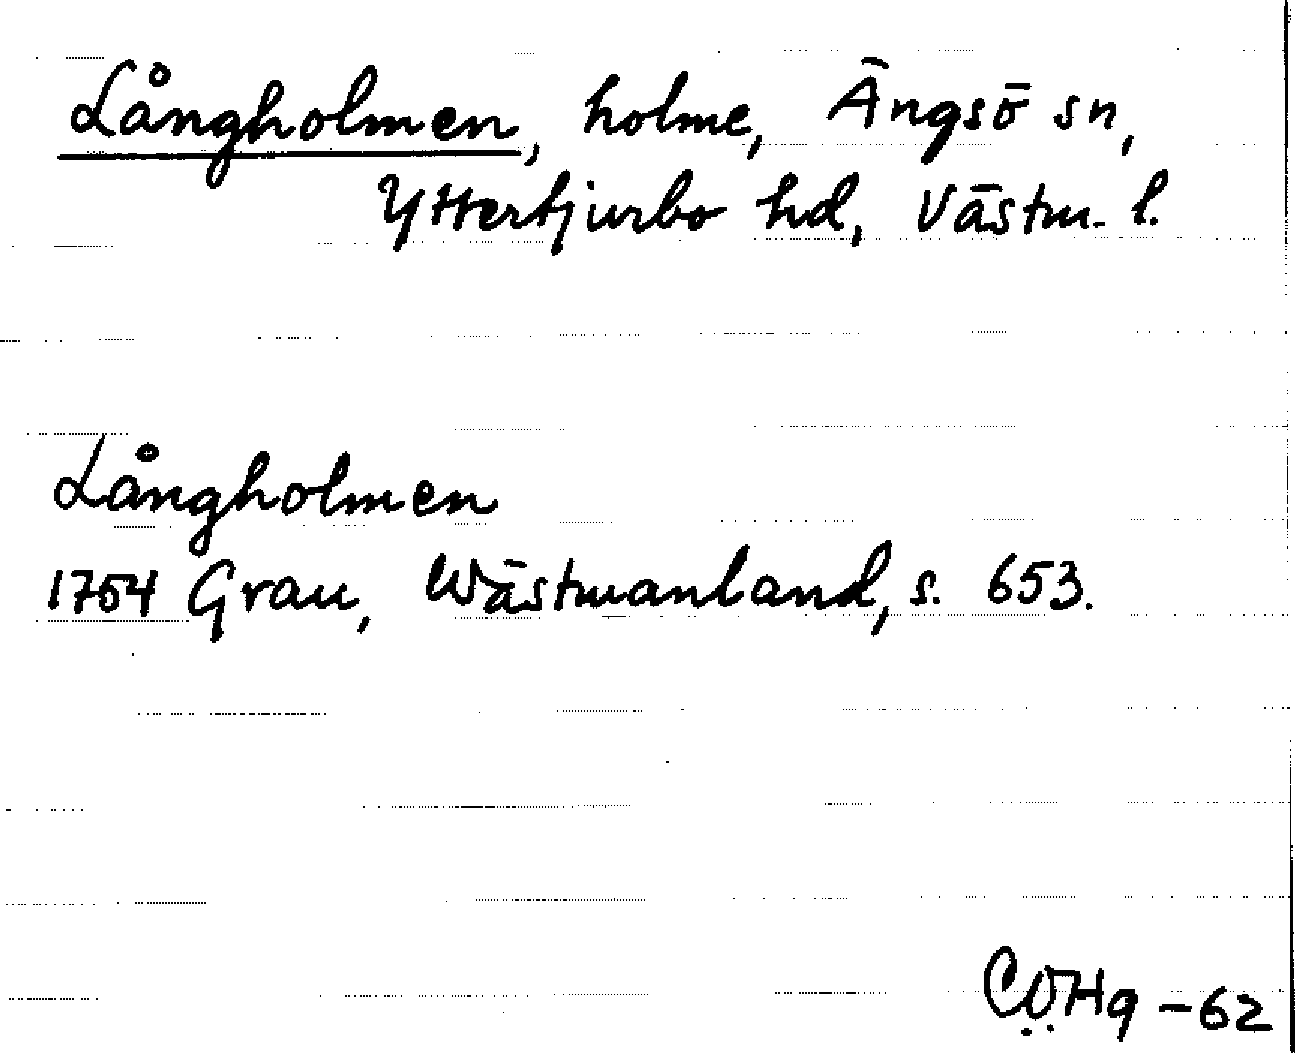 Långholmen, holme, Ängsö sn,
Yttertjurbo hd, Västm. l.
Långholmen
1754 Grau, Wästmanland, s. 653.
CÖHg -62